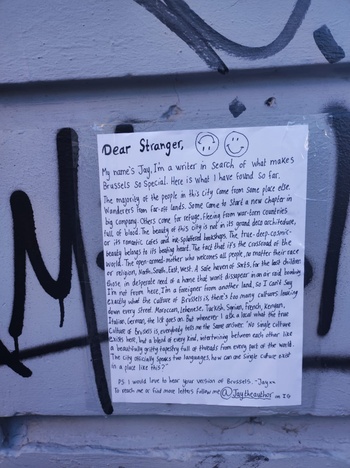 Dear Stranger,
My name's Jay, I'm a writer in search of what makes
Brussels so special. Here is what I have found so far.
The majority of the people in this city come from some place else.
Wanderers from far-off lands. Some came to start a new chapter in
big company. Others come for refuge, fleeing from war-torn countries
full of blood. The beauty of this city is not in its grand deco architecture,
or its romantic cafes and ink-splattered bookshops. The true-deep-cosmic-
beauty belongs to its beating heart. The fact that it's the crossroad of the
world. The open-armed-mother who welcomes all people, no matter their race
or religion, North, South, East, West. A safe haven of sorts, for the lost children
those in desperate need of a home that won't disappear in an air raid bombing.
I'm not from here, I'm a foreigner from another land, so I can't say
exactly what the culture of Brussels is, there's too many cultures lining
down every street. Moroccan, Lebanese, Turkish, Syrian, French, Kenyan,
Italian, German, the list goes on. But whenever I ask a local what the true
culture of Brussels is, everybody tells me the same answer. "No single culture
exists here, but a blend of every kind, intertwining between each other like
a beautifully gritty tapestry full of threads from every part of the world.
The city officially speaks two languages, how can one single culture exist
in a place like this?"
PS I would love to hear your version of Brussels. -Jay
To reach me or find more letters follow me @Jaytheauthor on IG